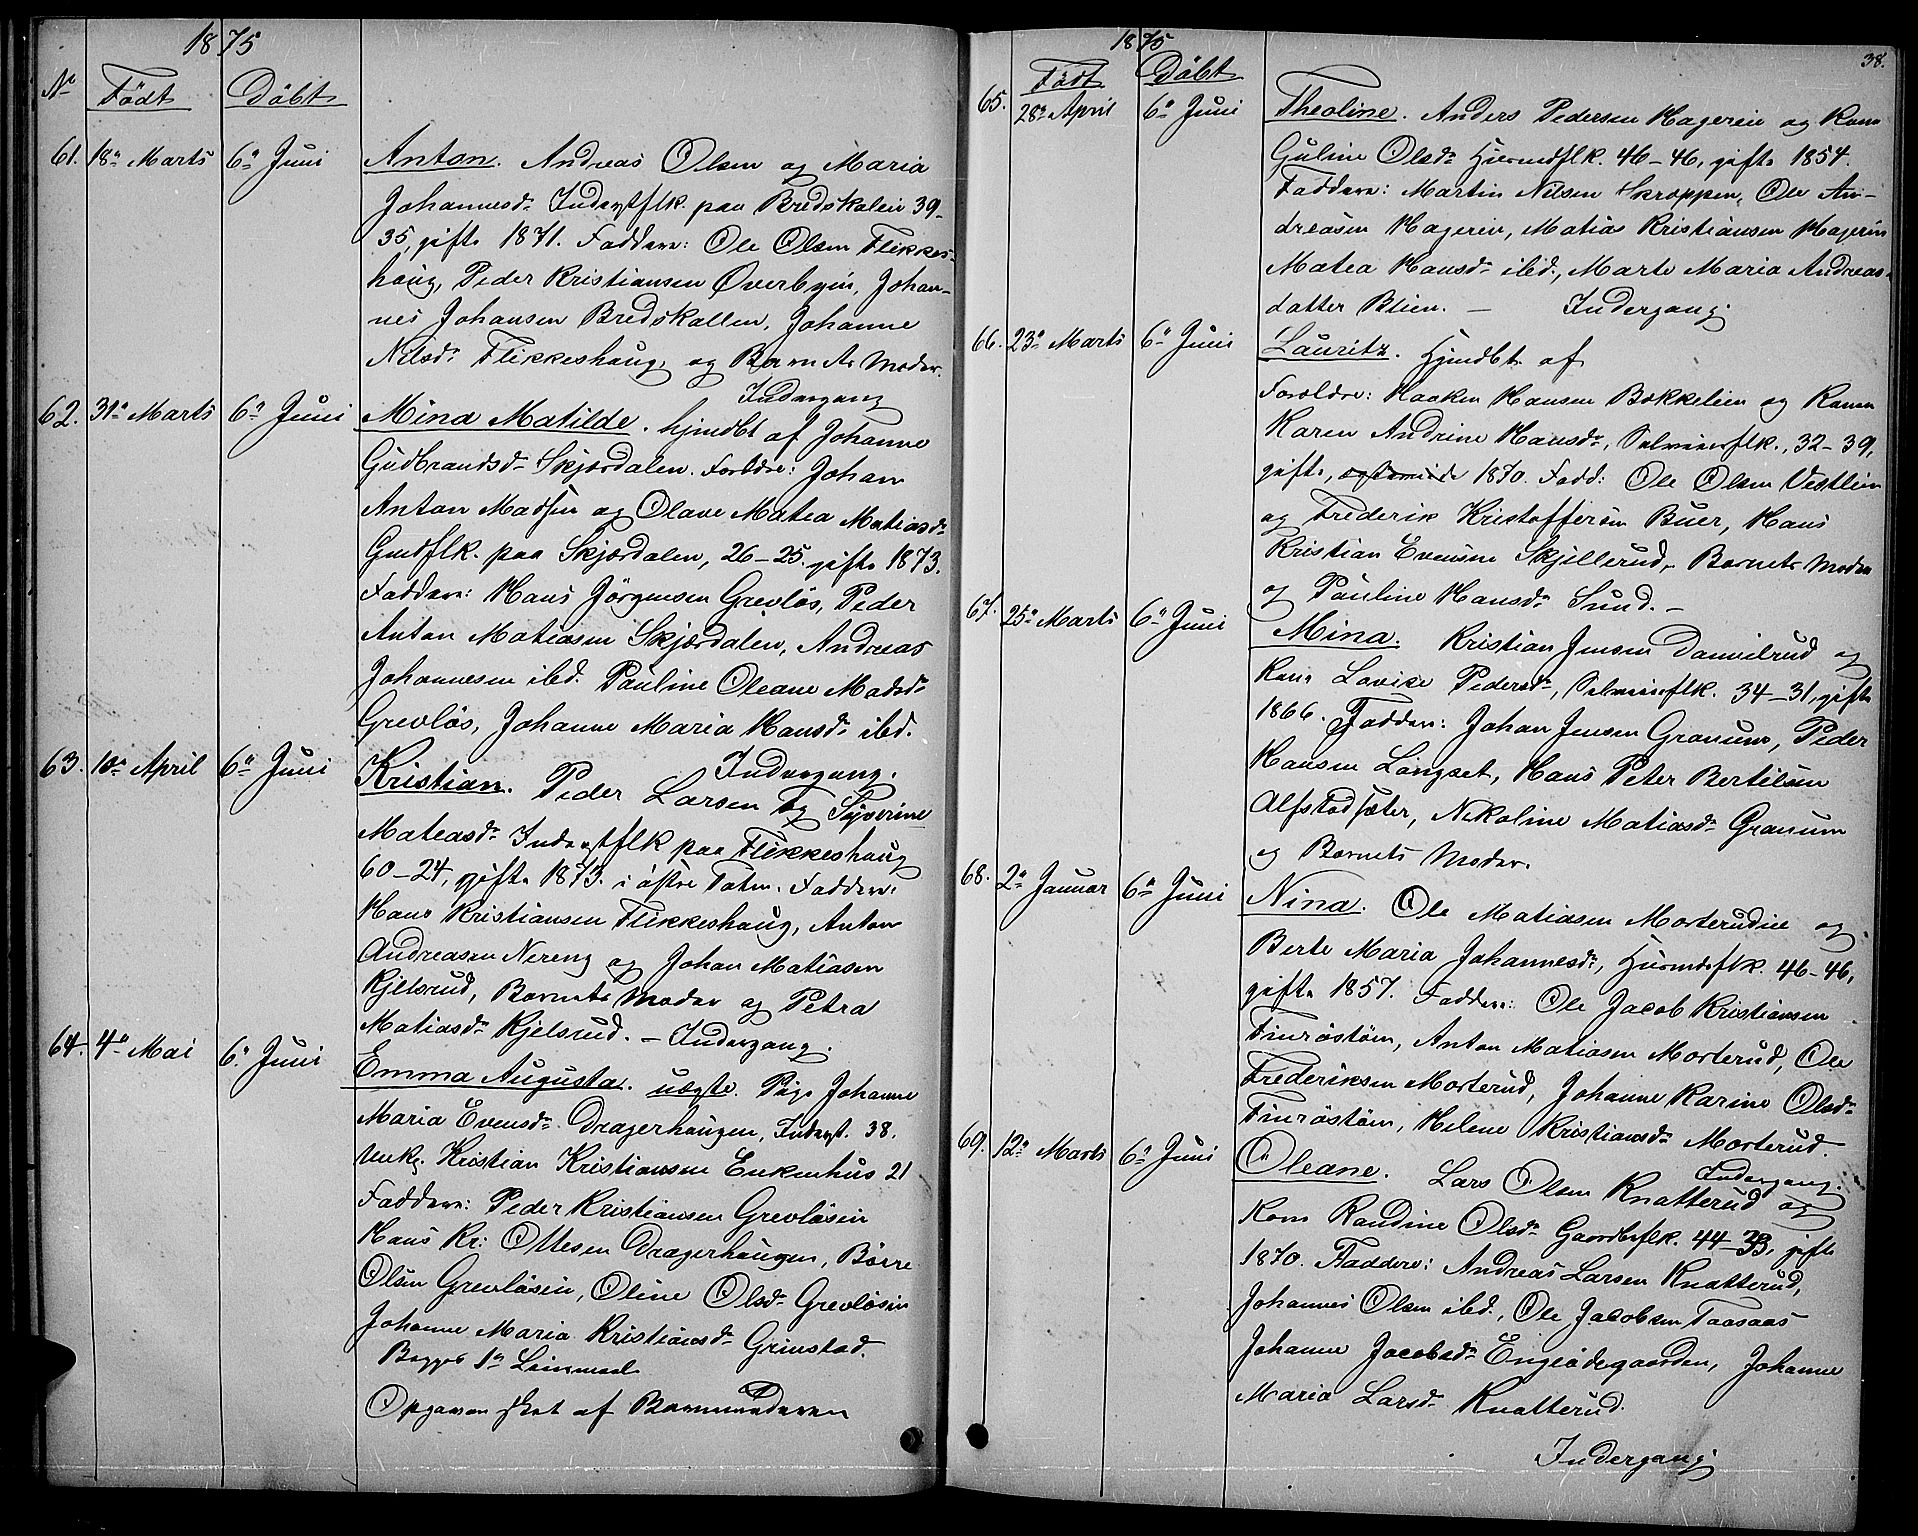 1875
No Födt Döbt
61. 18de Marts 6te Juni Anton. Andreas Olsen og Maria
Johannesdr Inderstflk. paa Bredskalein 39-
35, gifte 1871. Faddere: Ole Olsen Flikkes-
haug, Peder Kristiansen Øverbyen, Johan-
nes Johansen Bredskallen, Johanne
Nilsdr Flikkeshaug, og Barnets Moder.
Indergang
62. 31te Marts 6te Juni Mina Matilde. hjmdbt af Johanne
Gudbrandsdr Skjærdalen. Forældre: Johan
Anton Madsen og Olave Matea Matiasdr
Gmdflk. paa Skjærdalen, 26-25. gifte 1873.
Faddere: Hans Jörgensen Grevlös, Peder
Anton Matiasen Skjærdalen, Andreas
Johannesen ibd. Pauline Oleane Madsdr
Grevlös, Johanne Maria Hansdr ibd.
Indergang.
63. 10de April 6te Juni Kristian. Peder Larsen og Syverine
Mateasdr Inderstflk paa Flikkeshaug
60-24, gifte 1873. i östre Toten. Faddere:
Hans Kristiansen Flikkeshaug, Anton
Andreasen Nereng og Johan Matiasen
Kjelsrud, Barnets Moder og Petra
Matiasdr Kjelsrud. - Indergang.
64. 4de Mai 6te Juni Emma Augusta. uægte. Pige Johanne
Maria Evensdr Dragerhaugen, Inderst. 38.
Unk. Kristian Kristiansen Enkenhus 21
Faddere: Peder Kristiansen Grevlösin
Hans Kr: Ottesen Dragerhaugen, Börre
Olsen Grevlösin, Oline Olsdr Grevlösin
Johanne Maria Kristiansdr Grimstad.
Begges 1ste Leiermaal
Opgaven sket af Barnemoderen
1875
38.
Födt Döbt
65. 28de April 6te Juni Theoline. Anders Pedersen Hagerein og Kone
Guline Olsdr Huusmdflk. 46-46, gifte 1854.
Faddere: Martin Nilsen Skroppen, Ole An-
dreasen Hagerein, Matias Kristiansen Hagerein
Matea Hansdr ibid., Marte Maria Andreas-
datter Blien. - Indergang
66. 23de Marts 6te Juni Lauritz. Hjmdbt. af
Forældre: Haaken Hansen Bakkelein og Konen
Karen Andrine Hansdr, Selveierflk., 32-39,
gifte, 1870. Fadd: Ole Olsen Vestlien
og Frederik Kristoffersen Buer, Hans
Kristian Evensene Skjellerud, Barnets Moder
og Pauline Hansdr Sund. -
67. 25de Marts 6te Juni Mina. Kristian Jensen Danielrud og
Kone Lovise Pedersdr, Selveierflk. 34-31, gifte
1866. Faddere: Johan Jensen Granum, Peder
Hansen Langset, Hans Peter Bertilsen
Alfstadsæter, Nikoline Matiasdr Granum
og Barnets Moder.
68. 2den Januar 6te Juni Nina. Ole Matiasen Morterudeie og
Berte Maria Johannesdr, Huusmdsflk. 46-46,
gifte 1857. Faddere: Ole Jacob Kristiansen
Finröstöen, Anton Matiasen Morterud, Ole
Frederiksen Morterud, Johanne Karine Olsdr
Finröstöen, Helene Kristiansdr Morterud.
Indergang.
69. 12te Marts 6te Juni Oleane. Lars Olsen Knatterud og
Kone Randine Olsdr Gaardbrflk. 44-33, gifte
1870. Faddere: Andreas Larsen Knatterud,
Johannes Olsen ibd., Ole Jacobsen Taasaas
Johanne Jacobsdr Engeödegaarden, Johanne
Maria Larsdr Knatterud.
Indergang